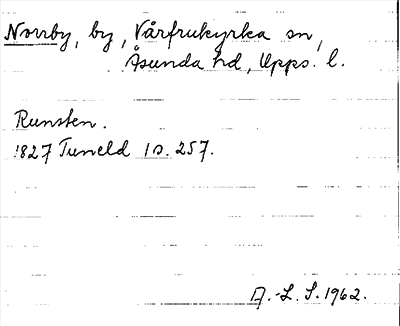 Norrby, by, Vårfrukyrka sn,
Åsunda hd, Upps. l.
Runsten.
1827 Tuneld 1 s. 257.
A.-L. S. 1962.